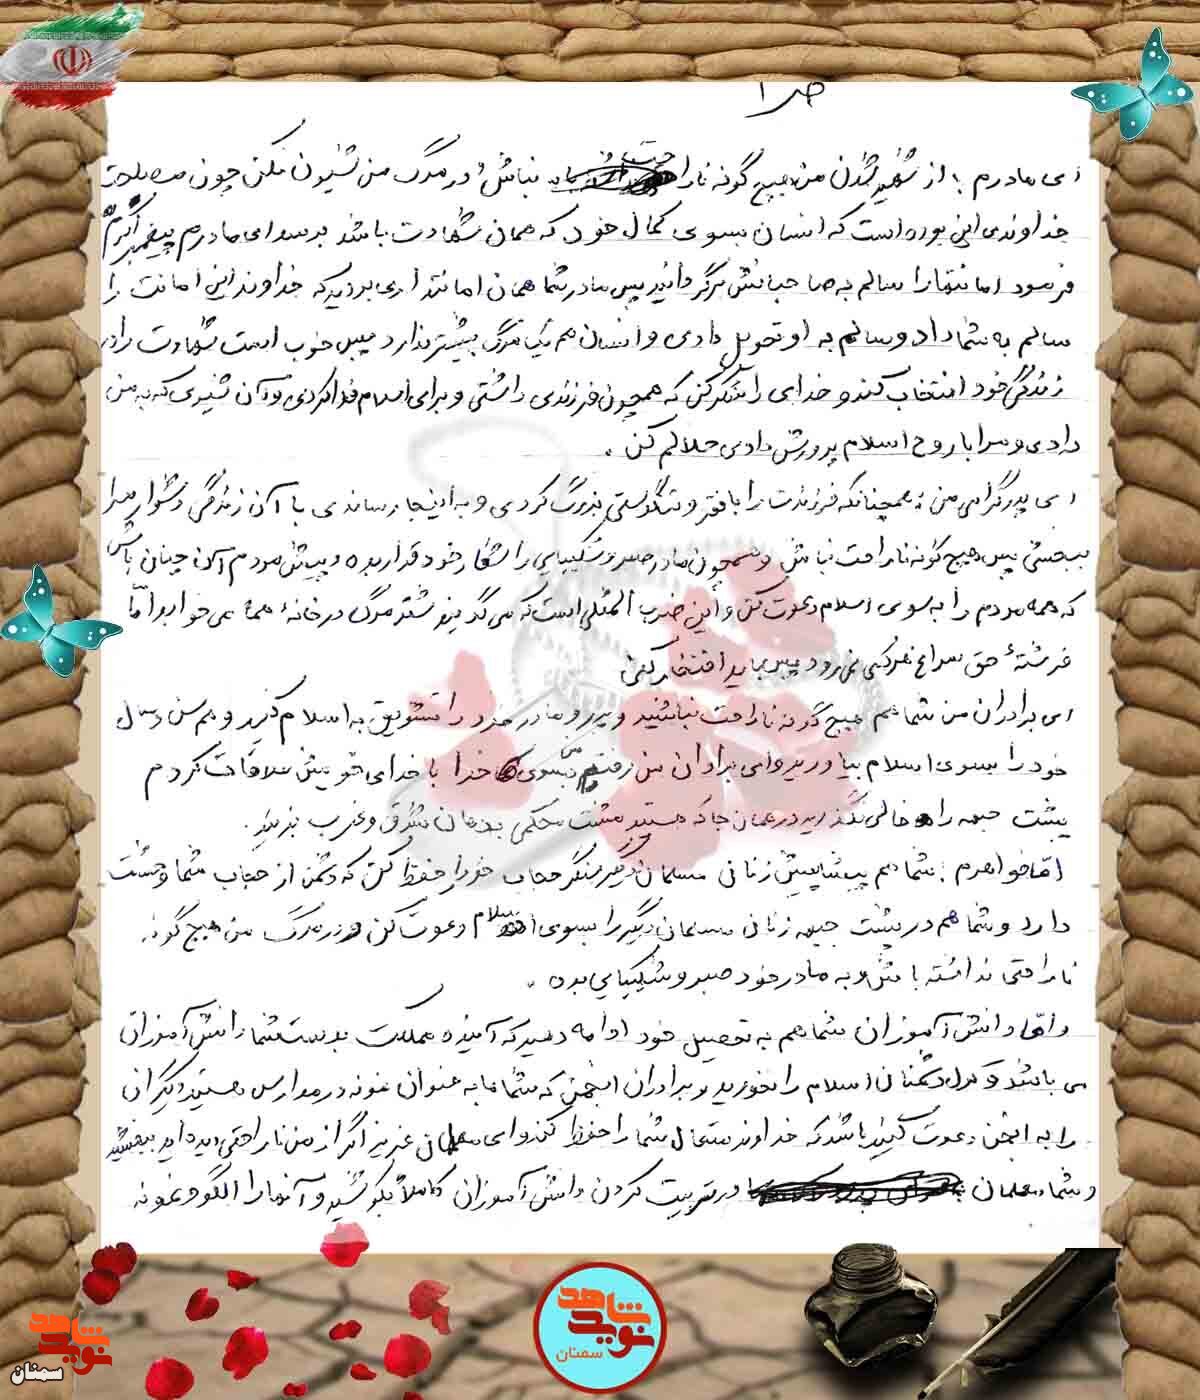 خدا
ای مادرم ! از شهید شدن من هیچ گونه ناراحت نباش و در مرگ من شیون نکن چون مصلحت
خداوندی این بوده است که انسان بسوی کمال خود که همان شهادت باشد برسد ای مادرم پیغمبر اکرم
فرمود امانتها را سالم به صاحبانش برگردانید پس مادر شما همان امانتداری بودید که خداوند این امانت را
سالم به شما داد و سالم به او تحویل دادی و انسان هم یک مرگ بیشتر ندارد پس خوب است شهادت را در
زندگی خود انتخاب کند و خدای را شکر کن که همچون فرزندی داشتی و برای اسلام فدا کردی و آن شیری که به من
دادی و مرا با روح اسلام پرورش دادی حلالم کن .
ای پدر گرامی من : همچنانکه فرزندت را با فقر و تنگدستی بزرگ کردی و به اینجا رساندی با آن زندگی دشوار مرا
ببخش پس هیچ گونه ناراحت نباش و همچون مادر صبر و شکیبایی را شعار خود قرار بده و پیش مردم آن چنان باش
که همه مردم را به سوی اسلام دعوت کنی و این ضرب المثلی است که می گویند شتر مرگ در خانهٔ همه می خوابد امّا
فرشتهٔ حق سراغ هر کس نمی رود پس باید افتخار کنی
ای برادران من شما هم هیچ گونه ناراحت نباشید و پدر و مادر خود را تشویق به اسلام کنید و هم سن و سال
خود را بسوی اسلام بیاورید و ای برادران من رفتم بسوی خدا با خدای خویش ملاقات کردم
پشت جبهه را خالی نگذارید در همان جا که هستید مشت محکمی بدهان شرق و غرب بزنید .
امّا خواهرم : شما هم پیشاپیش زنانی مسلمان دیگر سنگر حجاب خود را حفظ کن که دشمن از حجاب شما وحشت
دارد و شما هم در پشت جبهه زنانی مسلمان دیگر را بسوی اسلام دعوت کن و در مرگ من هیچ گونه
ناراحتی نداشته باش و به مادر خود صبر و شکیبایی بده .
و امّا دانش آموزان شما هم به تحصیل خود ادامه دهید که آینده مملکت بدست شما دانش آموزان
می باشد و گول دشمنان اسلام را نخورید و برادران انجمنی که شماها به عنوان نمونه در مدارس هستید دیگران
را به انجمن دعوت کنید باشد که خداوند متعال شما را حفظ کند و ای معلمان عزیز اگر از من ناراحتی دیده اید ببخشید
و شما معلمان در تربیت کردن دانش آموزان کاملاً بکوشید و آنها را الگو و نمونه
نوید شاهد
سمنان
نوید شاهد
سمنان